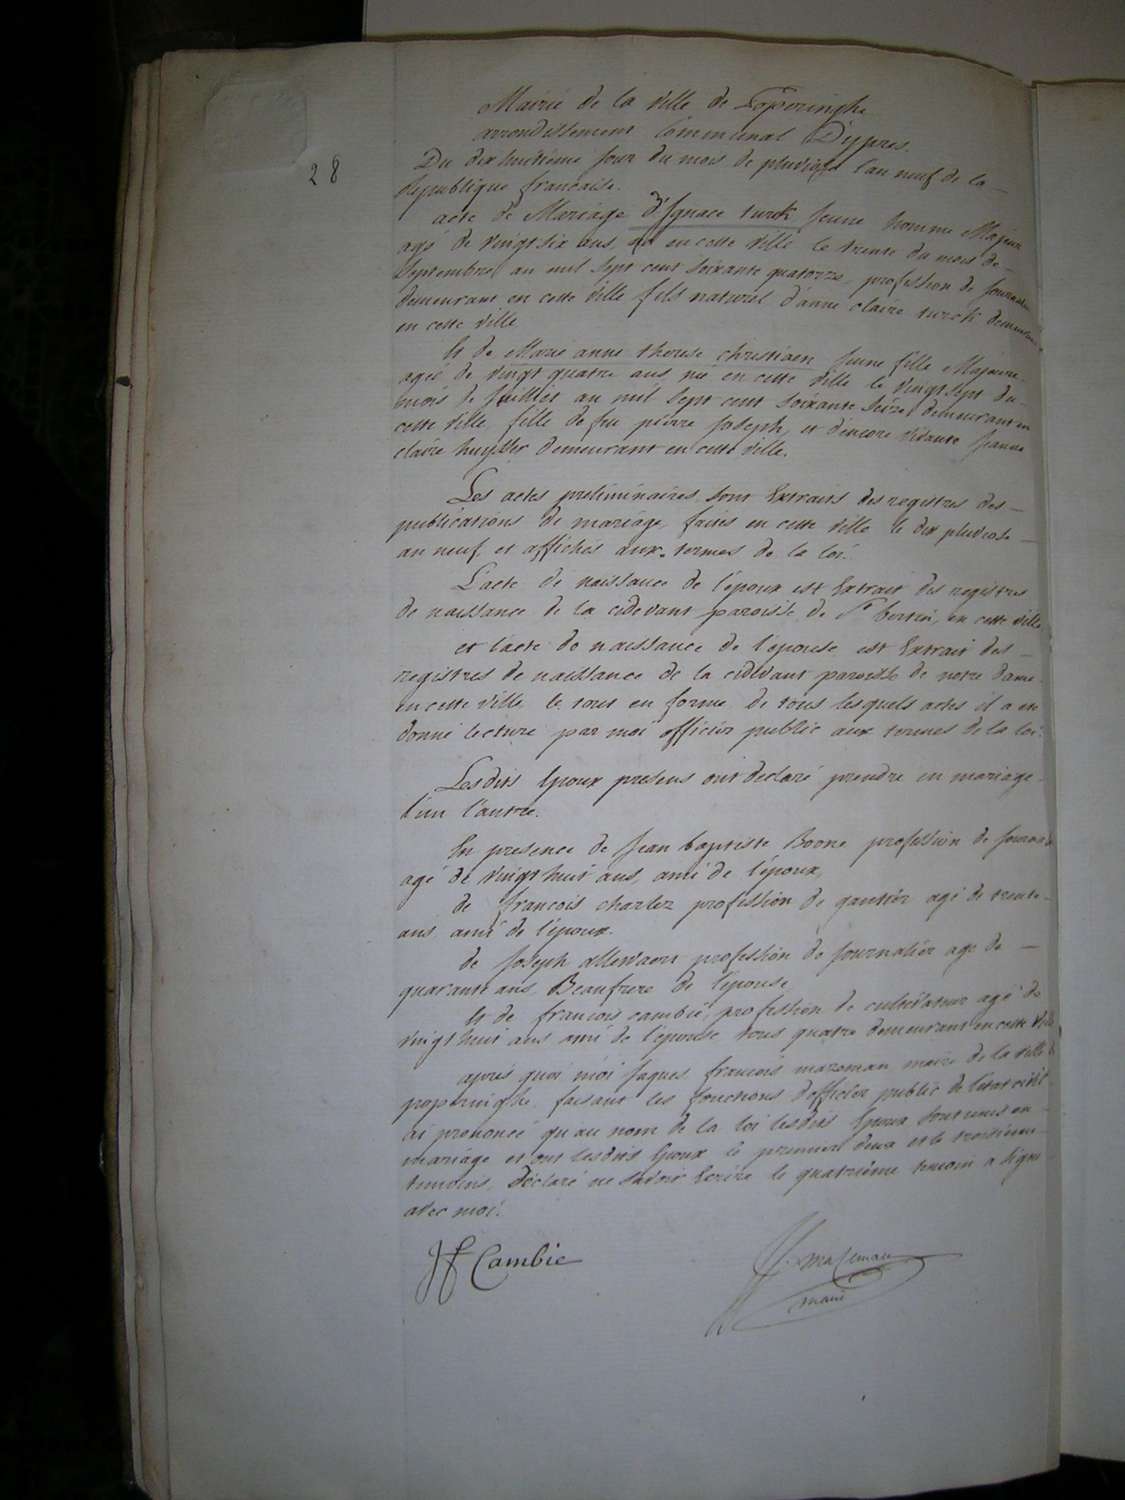 28
Mairie de la ville de Poperinghe
arrondissement Communal D'ypres.
Du dix huitième jour du mois de pluviose l'an neuf de la
Republique francaise.
acte de Mariage d'Ignace turck jeune homme Majeur
agé de vingt six ans, né en cette ville le trente du mois de
Septembre an mil sept cent soixante quatorze, profession de journalier
demeurant en cette ville fils naturel d'anne claire turck demeurant
en cette ville
Et de Marie anne therese christiaen jeune fille Majeure
agée de vingt quatre ans, née en cette ville le vingt sept du
mois de Juillet an mil sept cent soixante seize, demeurant en
cette ville, fille de feu pierre joseph, et d'encore vivante jeanne
claire demeurant en cette ville.
Les actes preliminaires sont Extraits des registres des
publications de mariage, faites en cette ville le dix pluviose
an neuf, et affichés aux termes de la loi.
L'acte de naissance de l'epoux est Extrait des registres
de naissance de la cidevant paroisse de St bertin, en cette ville
et l'acte de naissance de l'epouse est Extrait des
registres de naissance de la cidevant paroisse de notre dame
en cette ville le tout en forme de tous lesquels actes il a eu
donné lecture par moi officier public aux termes de la loi.
Lesdits Epoux presens ont declaré prendre en mariage
l'un l'autre.
En presence de Jean baptiste Boone profession de journalier
agé de vingt huit ans, ami de l'époux,
de francois charlez profession de gantier agé de trente
ans ami de l'époux.
de Joseph allewaert profession de journalier agé de
quarante ans Beaufrere de l'epouse
Et de francois cambie, profession de cultivateur agé de
vingt huit ans ami de l'epouse tous quatre demeurant en cette ville
apres quoi moi Jaques francois mazeman maire de la ville de
poperinghe faisant les fonctions d'officier public de l'etat civil
ai prononcé qu'au nom de la loi lesdits Epoux sont unis en
mariage et ont lesdits Epoux le premier deux et le troisieme
temoins, Declaré ne savoir Ecrire le quatrième temoin a signé
avec moi.
JF Cambie
mazeman
maire